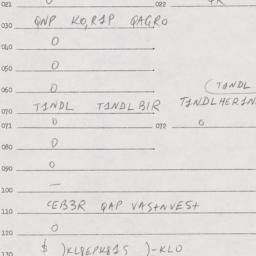 021 0 022
030 QNP KO,R1P QAGRO
040 0
050 0
060 0
(TANDL
070 TANDL TANDLBIR TANDLHERIN
071 0 072 0
080 0
090 0
100 —
110 CEB3R QAP VAS+NVES+
120 0
130 $ )KL8EPK81S )-KLO